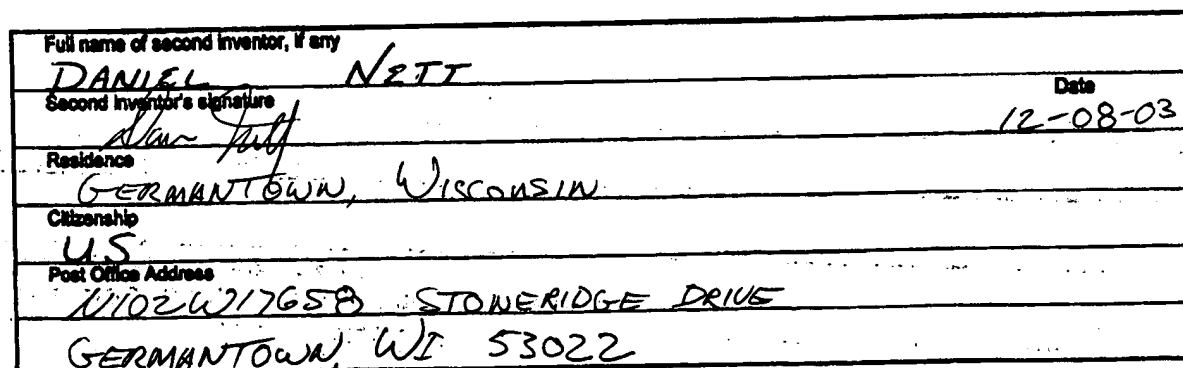 Full name of second inventor, if any
DANIEL NETT
Second inventor's signature Date
Dan Nett 12-08-03
Residence
GERMANTOWN, WISCONSIN
Citizenship
U.S
Post Office Address
N102W17658 STONERIDGE DRIVE
GERMANTOWN, WI 53022